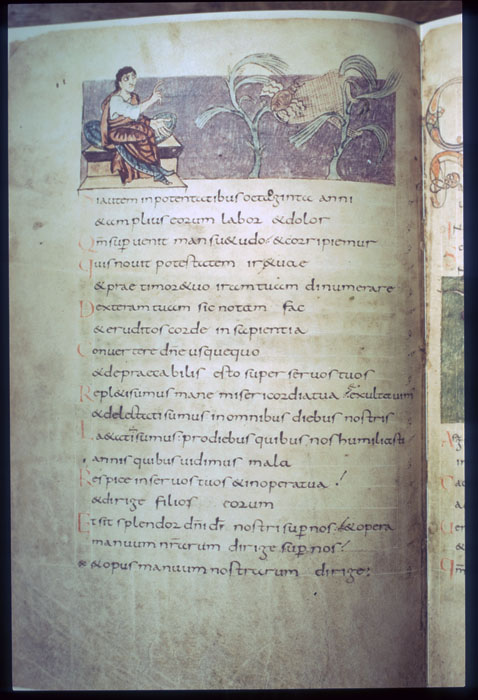 Siautem inpotentatibus octoginta anni
& amplius eorum labor & dolor
Qm̄ sup̄ uenit mansu&udo & corripiemur
Quis nouit potestatem ir&uae
& prae timor&uo iram tuam dinumerare
Dexteram tuam sic notam fac
& eruditos corde in sapientia
Conuertere dn̄e usquequo
& depraecabilis esto super seruos tuos
Repl&isumus mane misericordia tua & exultauim
& delectatisumus in omnibus diebus nostris
La&atisumus prodiebus quibus nos humiliasti
annis quibus uidimus mala
Respice in seruos tuos & in opera tua
& dirige filios eorum
Et sit splendor dn̄i dī nostri sup̄ nos & opera
manuum nr̄arum dirige sup̄ nos
& opus manuum nostrarum dirige